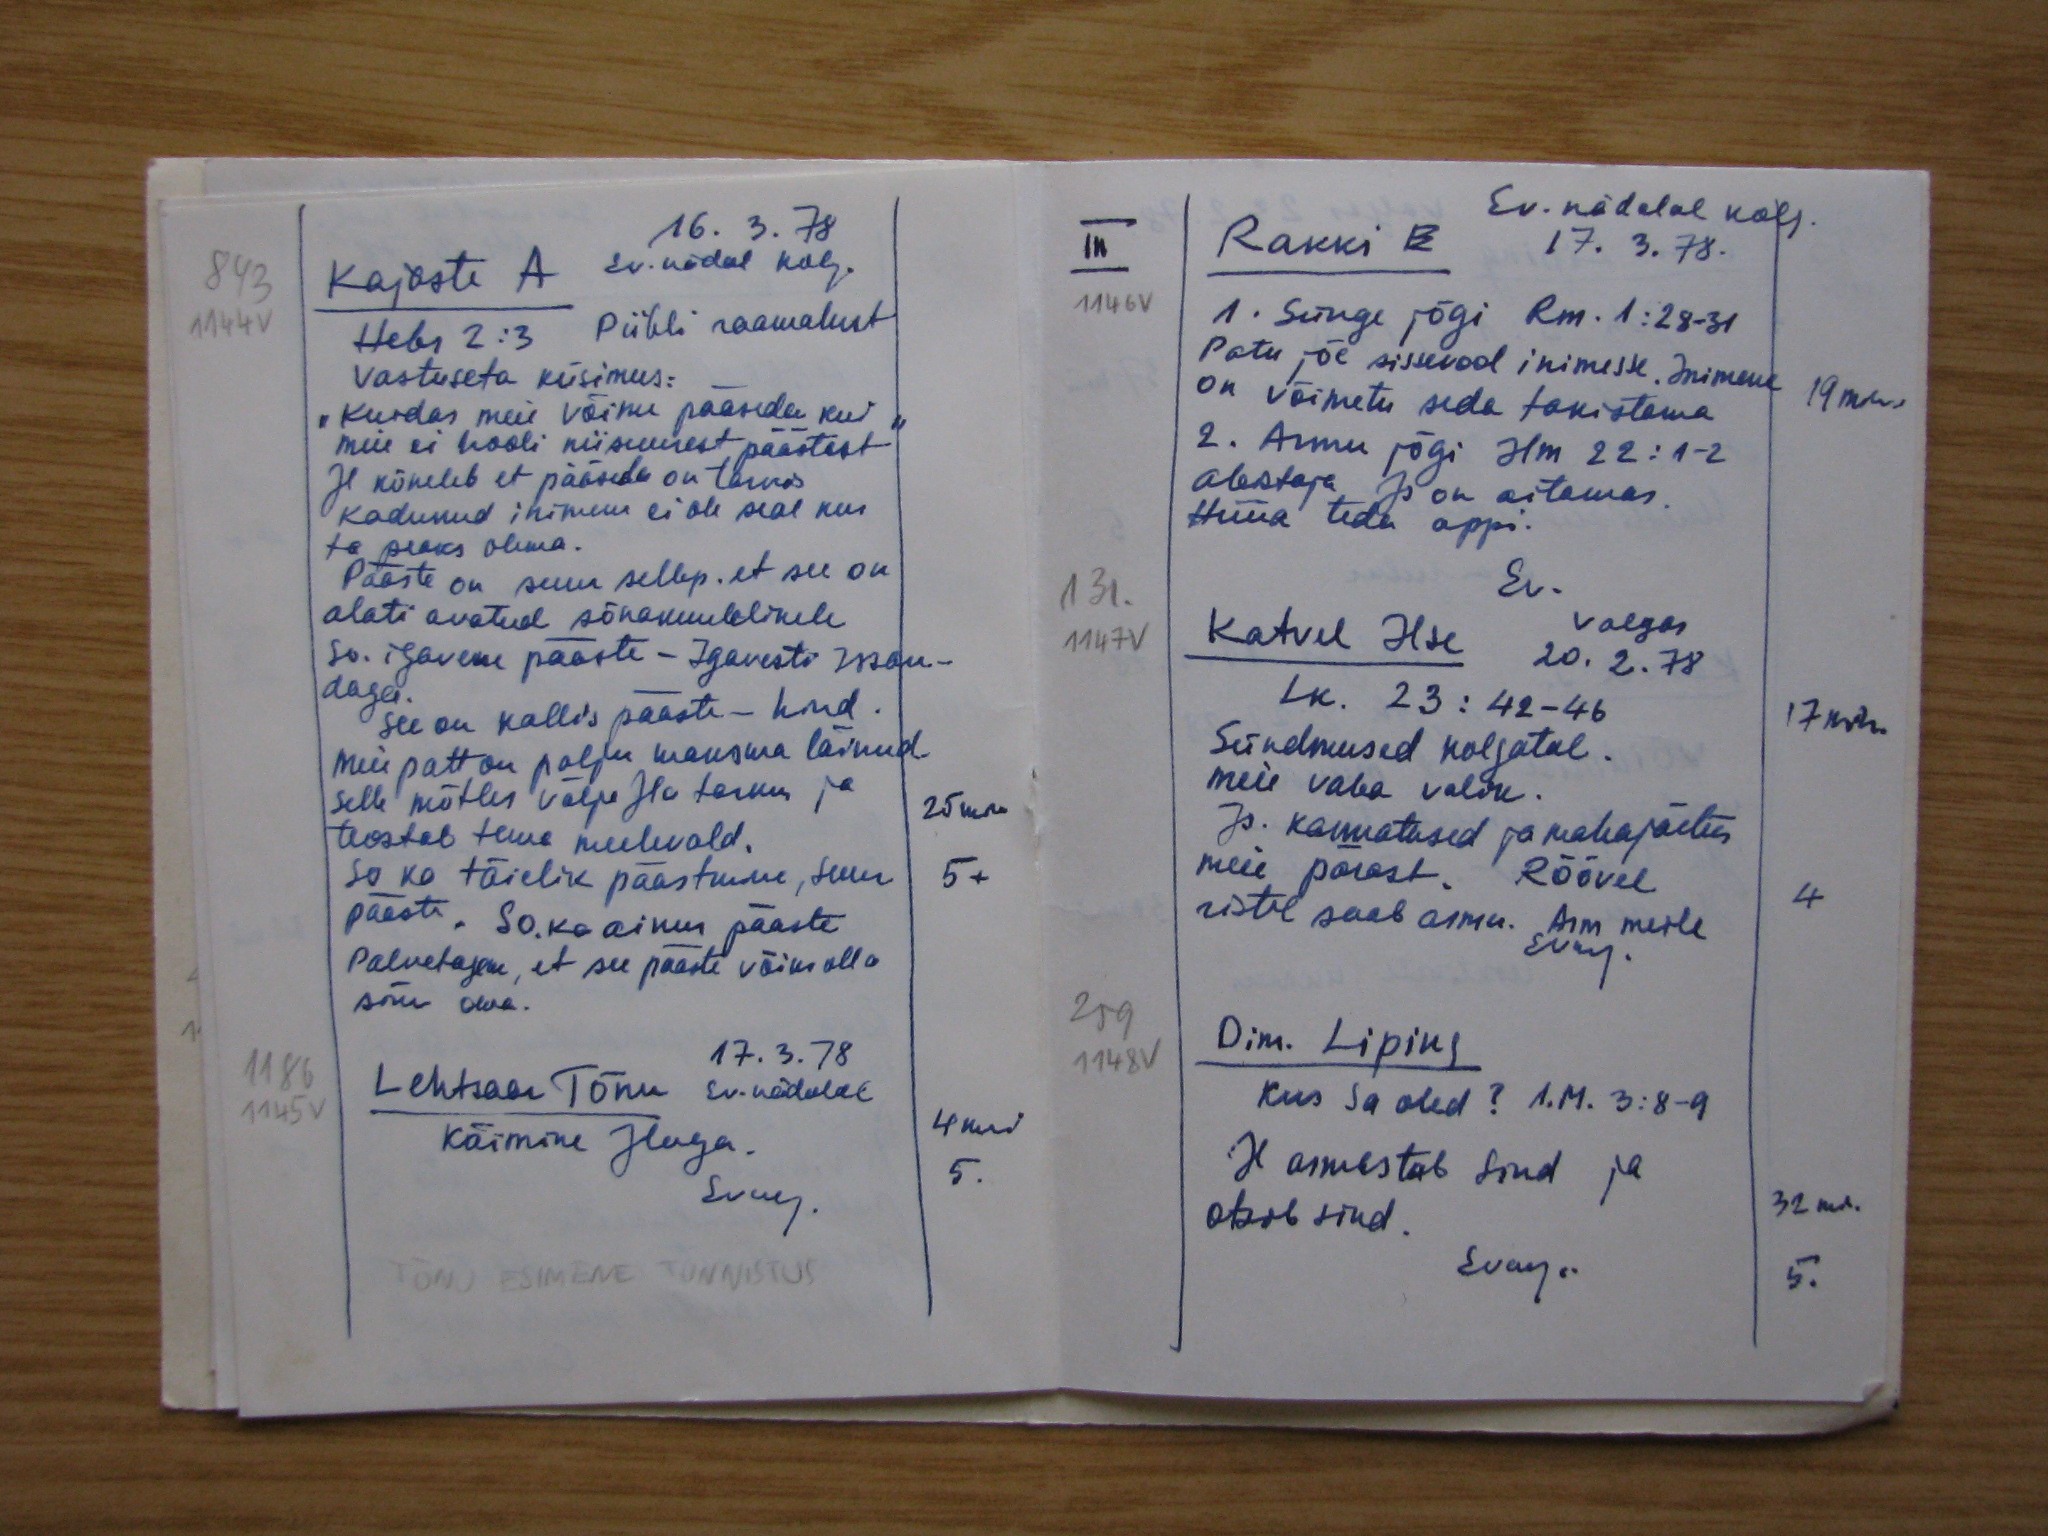 16. 3. 78
843
Kajaste A Ev. nädal kolg.
1144V
Hebr 2:3 Piibli raamatust
Vastuseta küsimus:
„Kuidas meie võime pääseda kui
meie ei hooli niisuurest päästest"
Jl kõneleb et pääseda on tarvis
Kadunud inimene ei ole seal kus
ta peaks olema.
Pääste on suur sellep. et see on
alati avatud sõnakuulelikele
So. igavene pääste - Igavesti Issan-
daga.
See on kallis pääste - hind.
Meie patt on palju maksma läinud
Selle mõtles välja Jla tarkus ja
teostab tema meelevald.
25 min
So ka täielik päästmine, suur
5+
pääste. So. ka ainus pääste
Palvetagem, et see pääste võiks olla
sinu oma.
17. 3. 78
1186
Lehtsaar Tõnu Ev. nädalal
1145V
4 min
Käimine Jlaga.
5.
Evang.
TÕNU ESIMENE TUNNISTUS
Ev. nädalal kolg.
III
Rakki E 17. 3. 78.
1146V
1. Sünge jõgi Rm. 1:28-31
Patu jõe sissevool inimesse. Inimene
on võimetu seda takistama
19 min.
2. Armu jõgi Ilm 22:1-2
Alastaja Js on aitamas.
Hüüa teda appi.
Ev.
131.
1147V
Katvel Ilse Valgas
20. 2. 78
Lk. 23:42-46
17 min.
Sündmused Kolgatal.
meie vaba valik.
Js. kannatused ja mahajäetus
meie pärast. Röövel
4
ristil saab armu. Arm meile
Evang.
259
1148V
Dim. Liping
Kus Sa oled? 1.M. 3:8-9
Jl armastab Sind ja
otsib sind.
32 min.
Evang..
5.